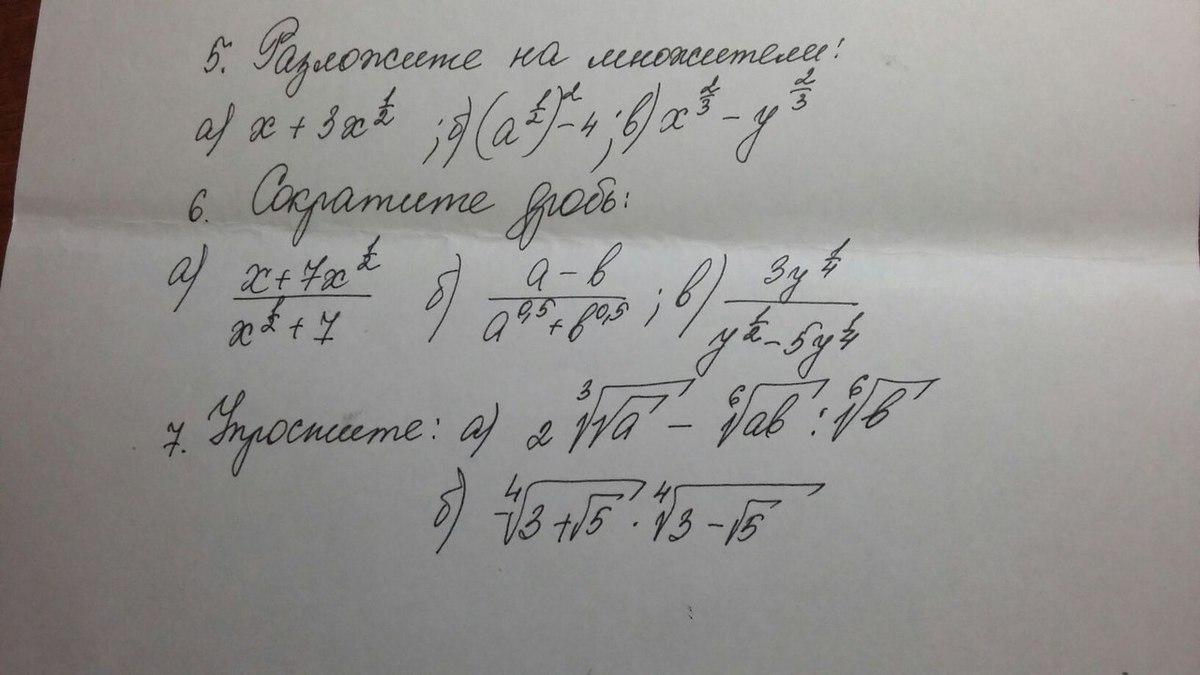 5. Разложите на множители:
а) x + 3x^{1/2} ; б) (a^{1/2})^2 - 4 ; в) x^{2/3} - y^{2/3}
6. Сократите дробь:
а) (x + 7x^{1/2})/(x^{1/2} + 7) б) (a - b)/(a^{0,5} + b^{0,5}) ; в) (3y^{1/4})/(y^{1/2} - 5y^{1/4})
7. Упростите: а) 2 ∛(√a) - ⁶√(ab) : ⁶√b
б) ⁴√(3 + √5) · ⁴√(3 - √5)